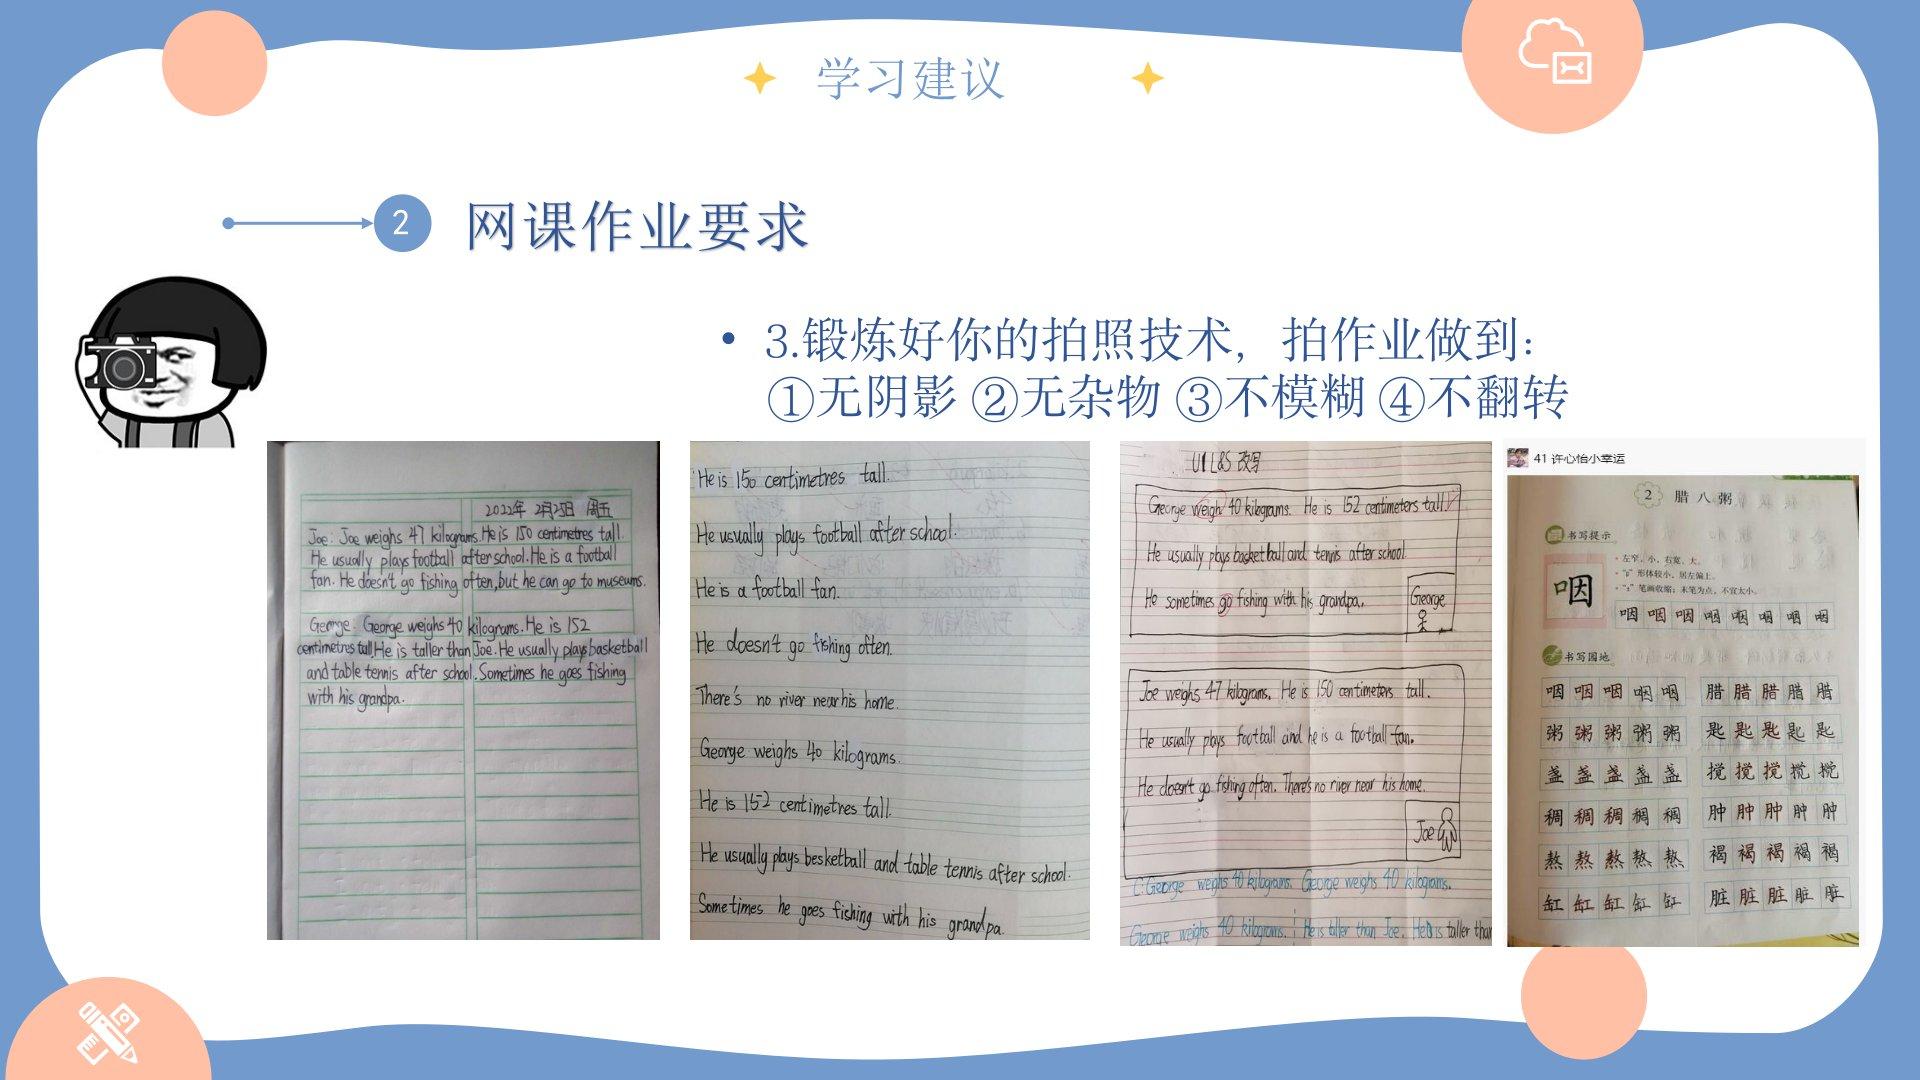 学习建议
2
网课作业要求
• 3.锻炼好你的拍照技术，拍作业做到：
①无阴影 ②无杂物 ③不模糊 ④不翻转
2022年 2月25日 周五
Joe: Joe weighs 47 kilograms. He is 150 centimetres tall.
He usually plays football after school. He is a football
fan. He doesn't go fishing often, but he can go to museums.
George: George weighs 40 kilograms. He is 152
centimetres tall. He is taller than Joe. He usually plays basketball
and table tennis after school. Sometimes he goes fishing
with his grandpa.
He is 150 centimetres tall.
He usually plays football after school.
He is a football fan.
He doesn't go fishing often.
There's no river near his home.
George weighs 40 kilograms.
He is 152 centimetres tall.
He usually plays besketball and table tennis after school.
Sometimes he goes fishing with his grandpa.
U1 L&S 改写
George weigh 40 kilograms. He is 152 centimeters tall.
He usually plays basketball and tennis after school.
He sometimes go fishing with his grandpa.
George
Joe weighs 47 kilograms. He is 150 centimeters tall.
He usually plays football and he is a football fan.
He doesn't go fishing often. There's no river near his home.
Joe
C: George weighs 40 kilograms. George weighs 40 kilograms.
George weighs 40 kilograms. He is taller than Joe. He is taller than
41 许心怡小幸运
2 腊八粥
书写提示
• 左窄，小，右宽，大。
• “口”形体较小，居左偏上。
笔画收缩；末笔为点，不宜太小。
咽
咽 咽 咽 咽 咽 咽 咽 咽
书写园地
咽 咽 咽 咽 咽 腊 腊 腊 腊 腊
粥 粥 粥 粥 粥 匙 匙 匙 匙 匙
盏 盏 盏 盏 盏 搅 搅 搅 搅 搅
稠 稠 稠 稠 稠 肿 肿 肿 肿 肿
熬 熬 熬 熬 熬 褐 褐 褐 褐 褐
缸 缸 缸 缸 缸 脏 脏 脏 脏 脏